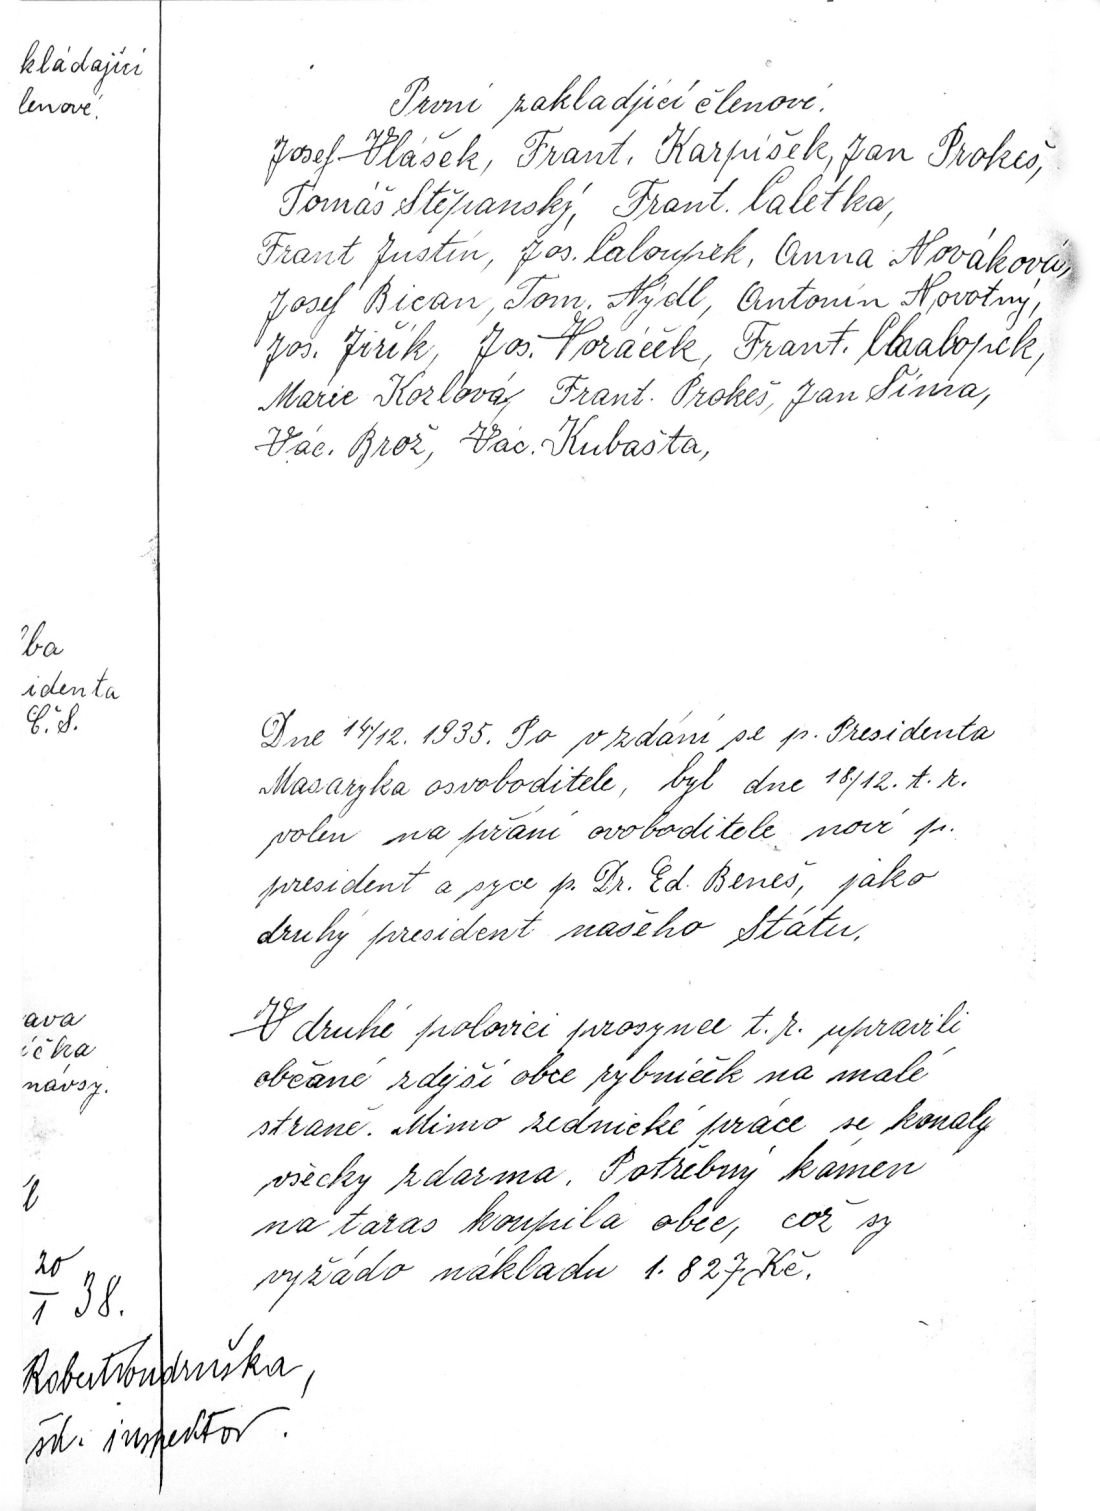 kládající
lenové.
První zakladjící členové.
Josef Vlášek, Frant. Karpíšek, Jan Prokeš,
Tomáš Štěpanský, Frant. Caletka,
Frant Justin, Jos. Caloupek, Anna Nováková,
Josef Bican, Tom. Nýdl, Antonín Novotný,
Jos. Jiřík, Jos. Voráček, Frant. Chalopek,
Marie Kozlová, Frant. Prokeš, Jan Šíma,
Vác. Brož, Vác. Kubašta,
ba
identa
Č.S.
Dne 14/12. 1935. Po vzdání se p. Presidenta
Masaryka osvoboditele, byl dne 18/12. t. r.
volen na přání ovoboditele noví p.
president a syce p. Dr. Ed. Beneš, jako
druhý president našeho Státu.
ava
íčka
návsy.
V druhé polovici prosynce t. r. upravili
občané zdejší obce rybníček na malé
straně. Mimo zednické práce se konaly
všecky zdarma. Potřebný kámen
na taras koupila obec, což sy
vyžádo nákladu 1.827 Kč.
20
1 38.
Robert Vondruška,
šk. inspektor.